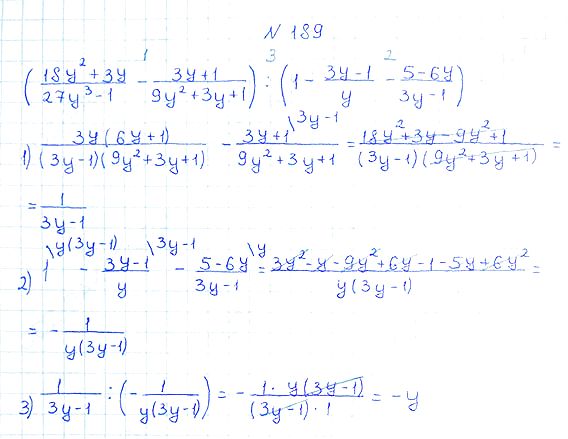 N 189
(18y² + 3y / 27y³ - 1 - 3y + 1 / 9y² + 3y + 1) : (1 - 3y - 1 / y - 5 - 6y / 3y - 1)
1 3 2
1) 3y(6y + 1) / (3y - 1)(9y² + 3y + 1) - 3y + 1 \3y - 1 / 9y² + 3y + 1 = 18y² + 3y - 9y² + 1 / (3y - 1)(9y² + 3y + 1) =
= 1 / 3y - 1
2) 1 \y(3y - 1) - 3y - 1 \3y - 1 / y - 5 - 6y \y / 3y - 1 = 3y² - y - 9y² + 6y - 1 - 5y + 6y² / y(3y - 1) =
= - 1 / y(3y - 1)
3) 1 / 3y - 1 : (- 1 / y(3y - 1)) = - 1 · y(3y - 1) / (3y - 1) · 1 = -y